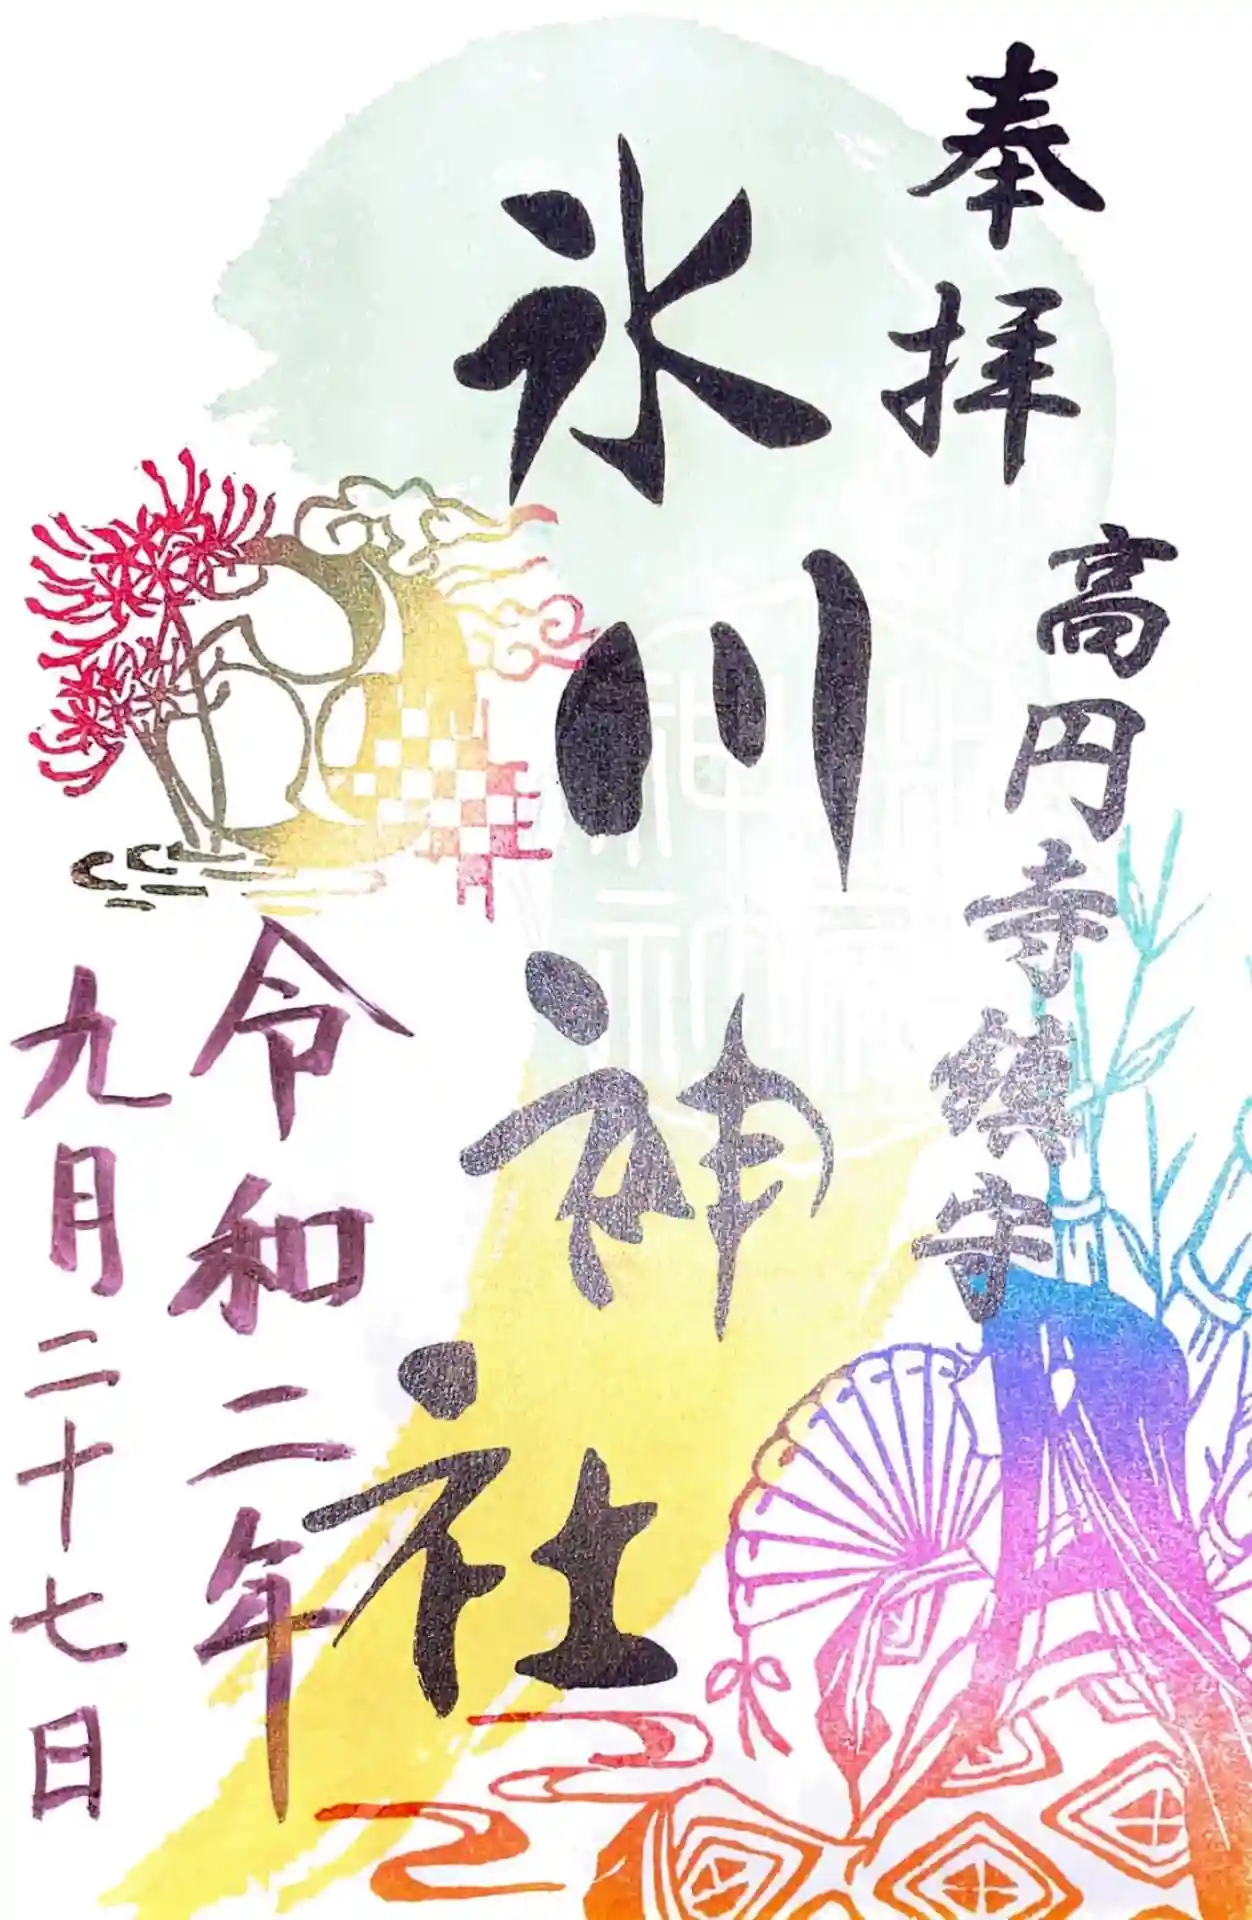 奉拝
高円寺鎮守
氷川神社
令和二年
九月二十七日